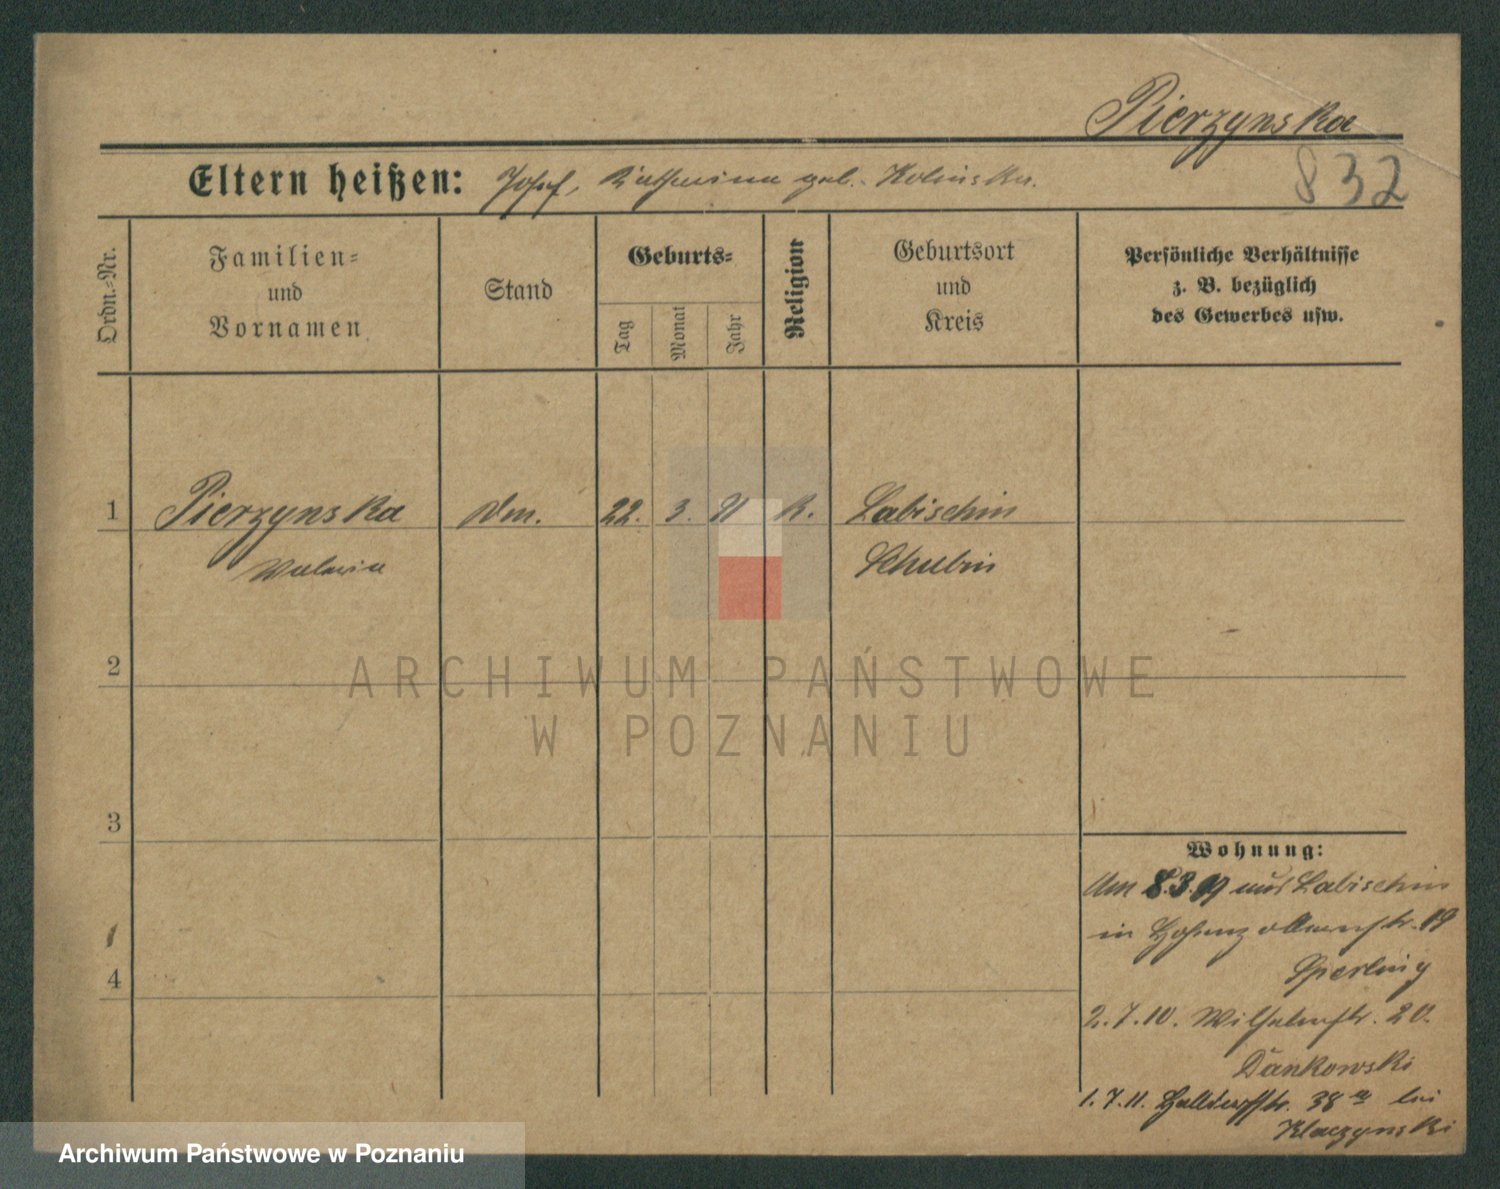 Pierzynska
832
Eltern heißen: Josef, Katharina geb. Kolinska.
Ordn.=Nr.
Familien=
und
Vornamen
Stand
Geburts=
Tag
Monat
Jahr
Religion
Geburtsort
und
Kreis
Persönliche Verhältnisse
z. B. bezüglich
des Gewerbes usw.
1 Pierzynska 22. 3. 91 K. Labischin
Schubin
2
3
4
Wohnung:
Am 8.3.09 aus Labischin
in Hohenzollernstr. 19
Sperling
2.7.10. Wilhelmstr. 20.
Dankowski
1.7.11. 38 a bei
Klaczynski
ARCHIWUM PAŃSTWOWE
W POZNANIU
Archiwum Państwowe w Poznaniu